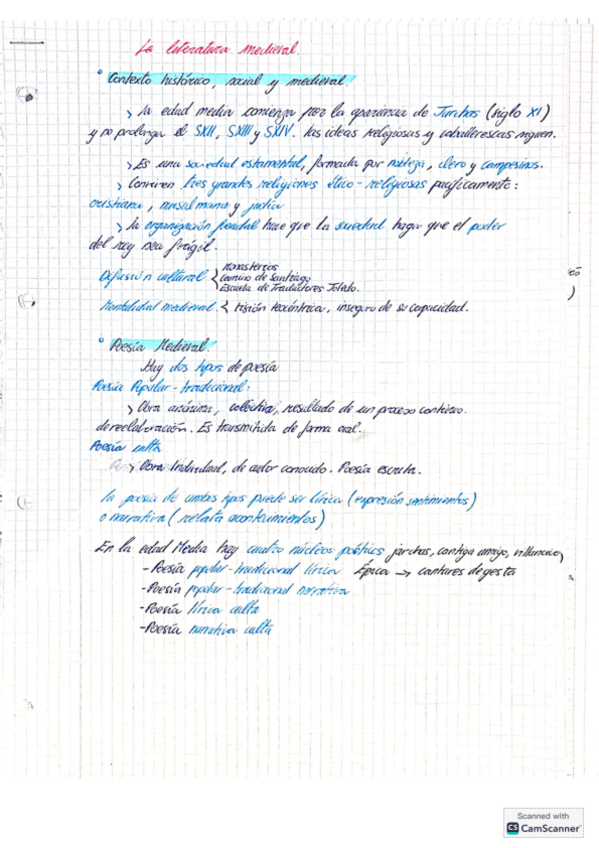 La literatura medieval.
° Contexto histórico, social y medieval.
> La edad media comienza por la aparición de Jarchas (siglo XI)
y no prolonga el SXII, SXIII y SXIV. Las ideas religiosas y caballerescas siguen.
> Es una sociedad estamental, formada por nobleza, clero y campesinos.
> Conviven tres grandes religiones ético-religiosas pacíficamente:
cristiana, musulmana y judía
> La organización feudal hace que la sociedad haga que el poder
del rey sea frágil.
Difusión cultural { Monasterios
Camino de Santiago
Escuela de Traductores Toledo.
Mentalidad medieval { Visión teocéntrica, inseguro de su capacidad.
° Poesía Medieval.
Hay dos tipos de poesía
Poesía Popular-tradicional:
> Obra anónima, colectiva, resultado de un proceso continuo.
de reelaboración. Es transmitida de forma oral.
Poesía culta
> Obra Individual, de autor conocido. Poesía escrita.
La poesía de ambos tipos puede ser lírica (expresión sentimientos)
o narrativa (relata acontecimientos)
En la edad Media hay cuatro núcleos poéticos jarchas, cantiga amigo, villancico,
-Poesía popular-tradicional lírica Épica → cantares de gesta
-Poesía popular-tradicional narrativa
-Poesía lírica culta
-Poesía narrativa culta
Scanned with
CS CamScanner